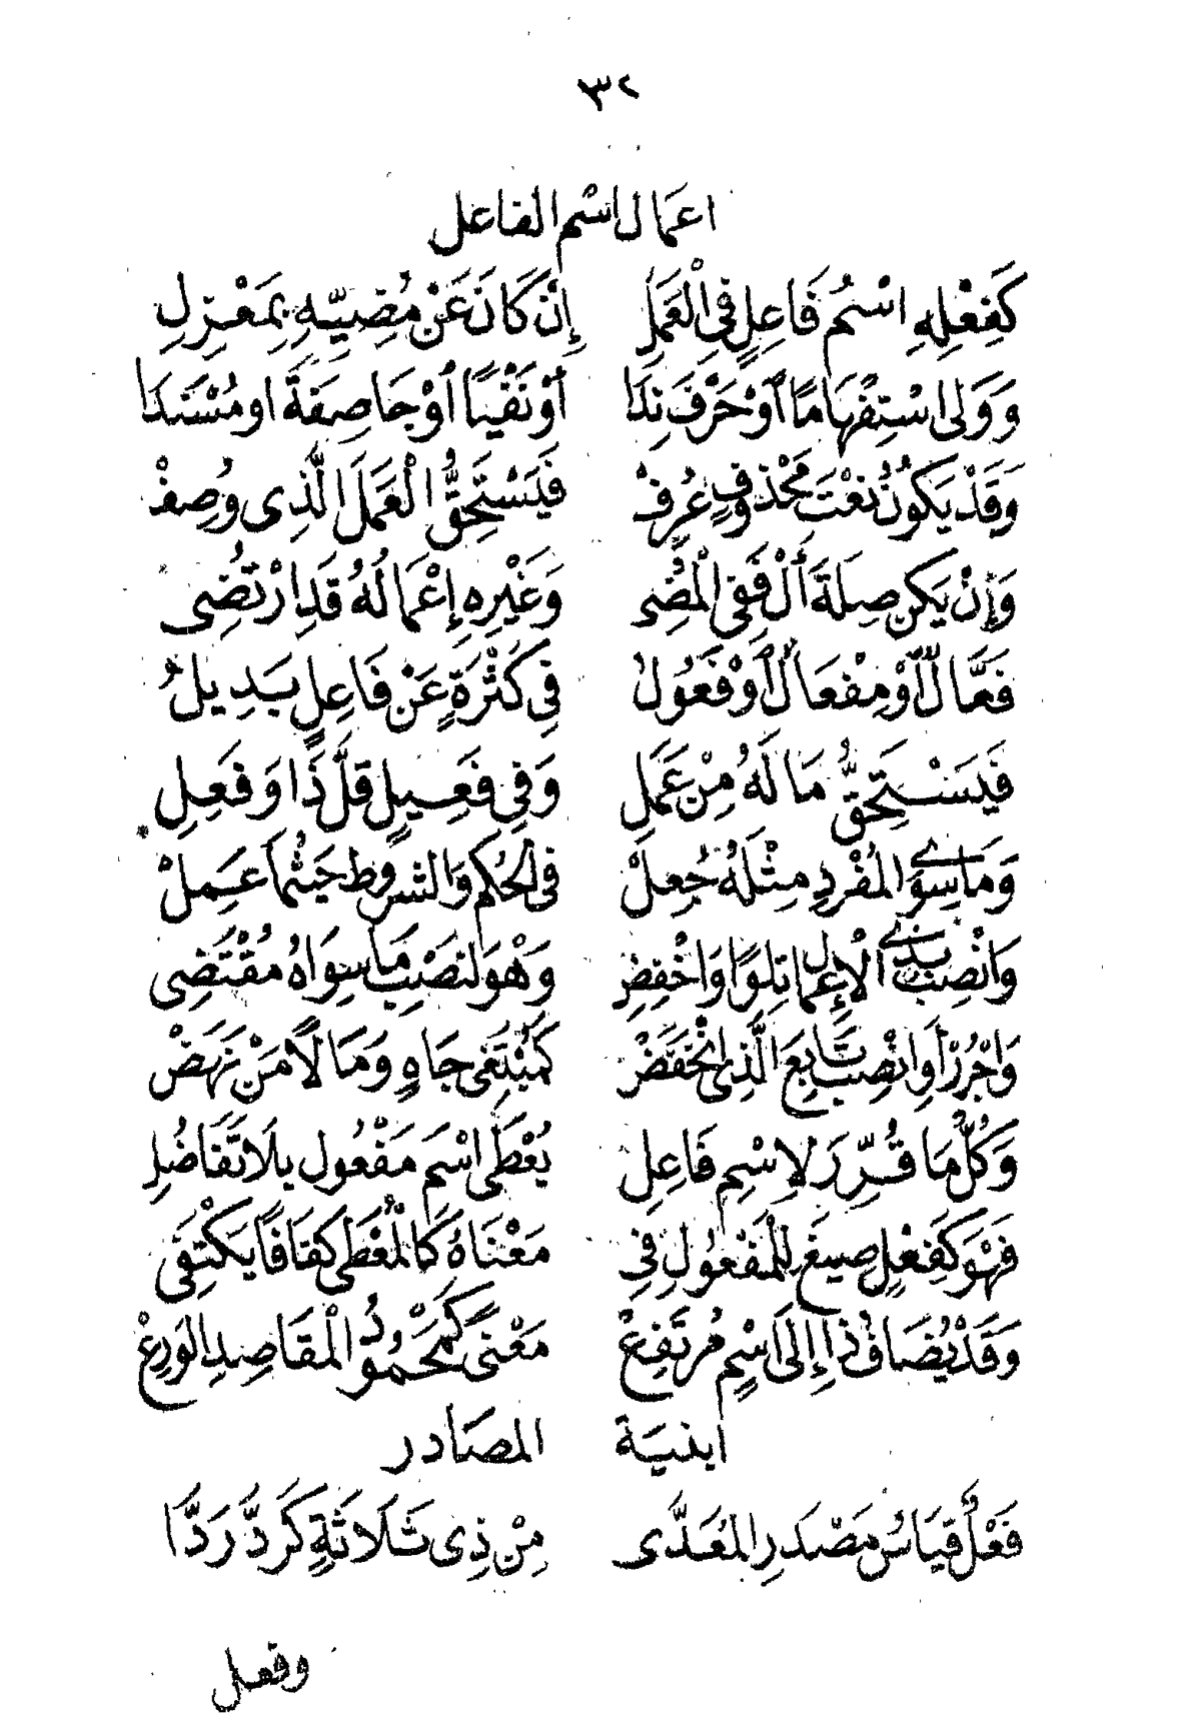 ٣٢
اعمال اسم الفاعل
كَفِعْلِهِ اسْمُ فَاعِلٍ فِى الْعَمَلِ إِنْ كَانَ عَنْ مُضِيِّهِ بِمَعْزِلِ
وَوَلِى اسْتِفْهَامًا أَوْ حَرْفَ نِدَا أَوْ نَفْيًا أَوْ جَا صِفَةً او مُسْنَدَا
وَقَدْ يَكُونُ نَعْتَ مَحْذُوفٍ عُرِفْ فَيَسْتَحِقُّ الْعَمَلَ الَّذِى وُصِفْ
وَإِنْ يَكُن صِلَةَ أَلْ فَفِى الْمُضِى وَغَيْرِهِ إِعْمَالُهُ قَدِ ارْتُضِى
فَعَّالٌ أَوْ مِفْعَالٌ أَوْ فَعُولُ فِى كَثْرَةٍ عَنْ فَاعِلٍ بَدِيلُ
فَيَسْتَحِقُّ مَا لَهُ مِنْ عَمَلِ وَفِى فَعِيلٍ قَلَّ ذَا وَفَعِلِ
وَمَا سِوَى الْمُفْرَدِ مِثْلَهُ جُعِلْ فِى الْحُكْمِ وَالشُّرُوطِ حَيْثُمَا عَمِلْ
وَانْصِبْ بِذِى الْإِعْمَالِ تِلْوًا وَاخْفِضِ وَهْوَ لِنَصْبِ مَا سِوَاهُ مُقْتَضِى
وَاجْرُرْ أَوِ انْصِبْ تَابِعَ الَّذِى انْخَفَضْ كَمُبْتَغِى جَاهٍ وَمَالًا مَنْ نَهَضْ
وَكُلُّ مَا قُرِّرَ لِاسْمِ فَاعِلِ يُعْطَى اسْمَ مَفْعُولٍ بِلَا تَفَاضُلِ
فَهْوَ كَفِعْلٍ صِيغَ لِلْمَفْعُولِ فِى مَعْنَاهُ كَالْمُعْطَى كَفَافًا يَكْتَفِى
وَقَدْ يُضَافُ ذَا إِلَى اسْمٍ مُرْتَفِعْ مَعْنًى كَمَحْمُودُ الْمَقَاصِدِ الْوَرِعْ
ابنية المصادر
فَعْلٌ قِيَاسُ مَصْدَرِ الْمُعَدَّى مِنْ ذِى ثَلَاثَةٍ كَرَدَّ رَدَّا
وفعل